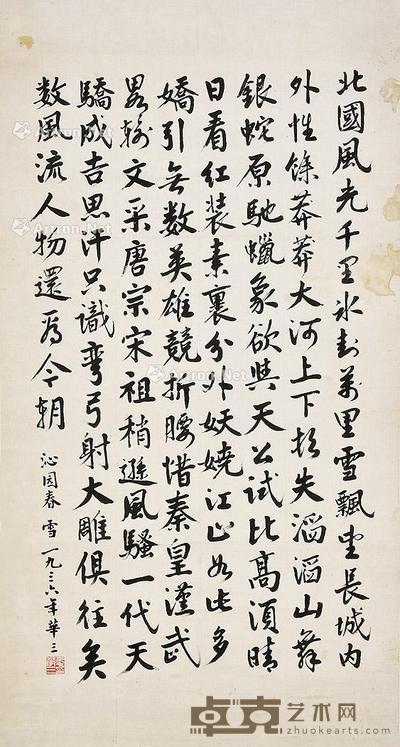 北國風光千里冰封萬里雪飄望長城内
外惟餘莽莽大河上下頓失滔滔山舞
銀蛇原馳蠟象欲與天公試比高須晴
日看紅裝素裹分外妖嬈江山如此多
嬌引無數英雄競折腰惜秦皇漢武
畧輸文采唐宗宋祖稍遜風騷一代天
驕成吉思汗只識彎弓射大雕俱往矣
数風流人物還看今朝
沁园春雪一九三六年華三
卓克艺术网
www.zhuokearts.com